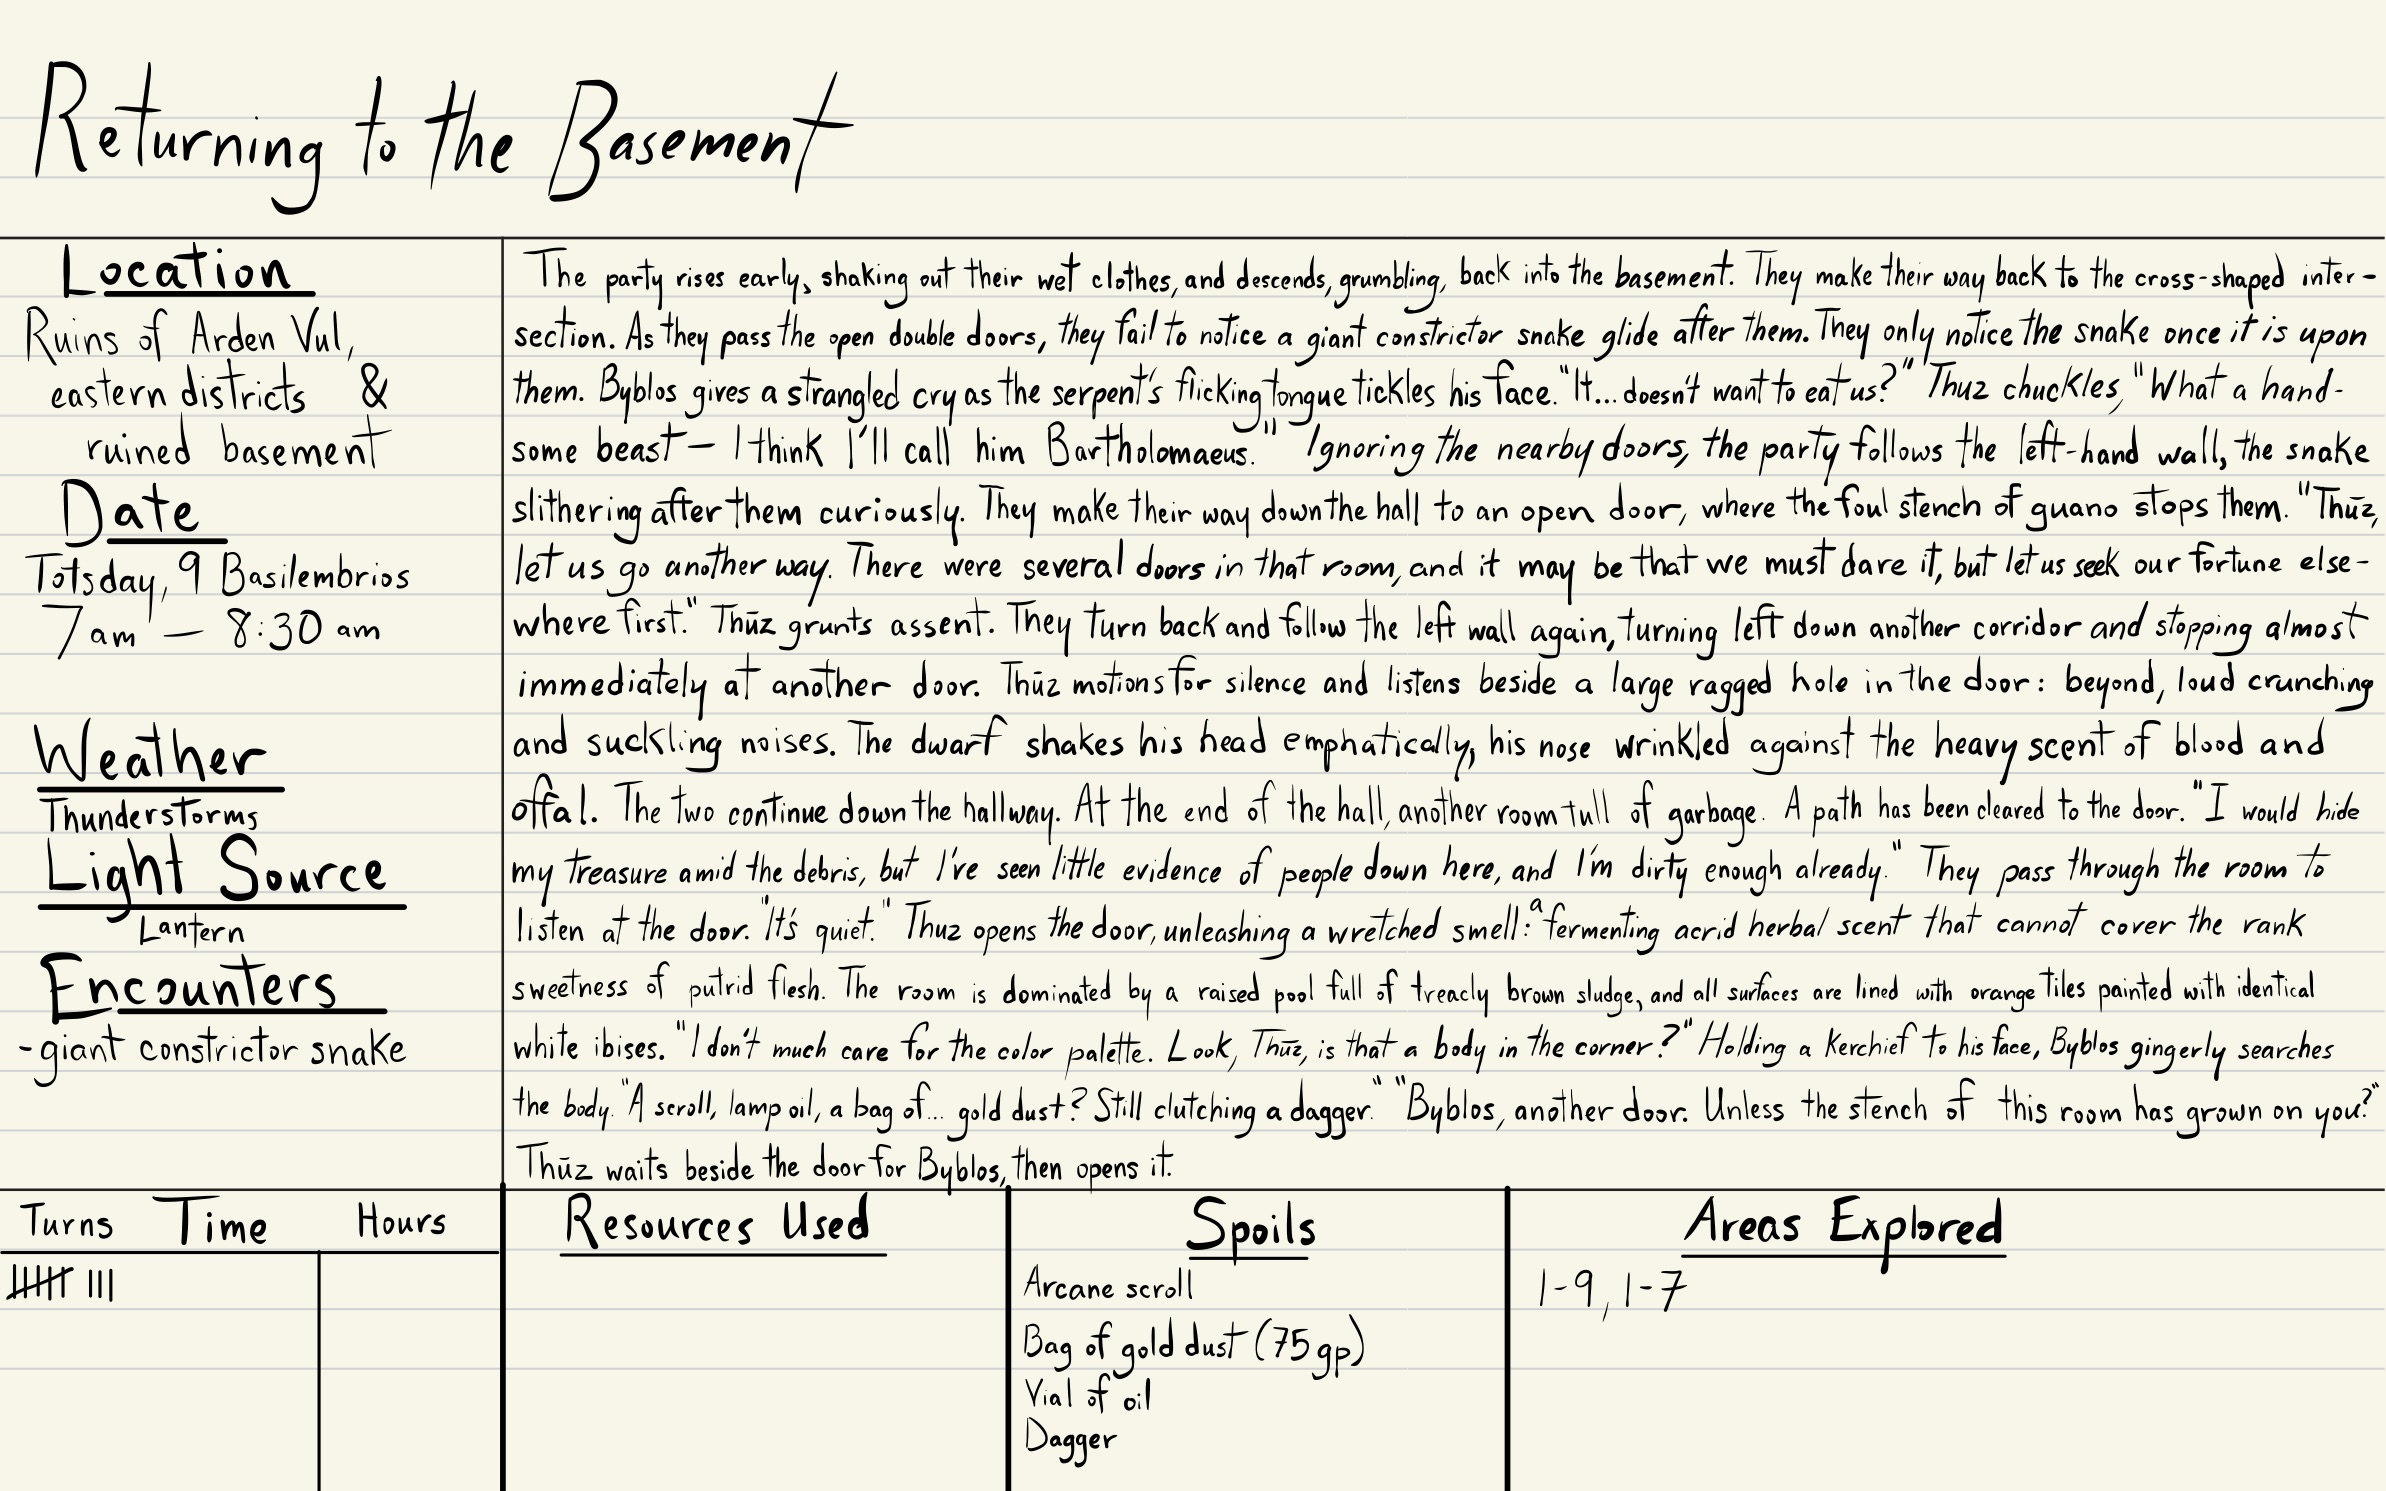 Returning to the Basement
Location
Ruins of Arden Vul,
eastern districts &
ruined basement
Date
Totsday, 9 Basilembrios
7am — 8:30 am
Weather
Thunderstorms
Light Source
Lantern
Encounters
-giant constrictor snake
The party rises early, shaking out their wet clothes, and descends, grumbling, back into the basement. They make their way back to the cross-shaped inter-
section. As they pass the open double doors, they fail to notice a giant constrictor snake glide after them. They only notice the snake once it is upon
them. Byblos gives a strangled cry as the serpent's flicking tongue tickles his face. "It... doesn't want to eat us?" Thuz chuckles, "What a hand-
some beast — I think I'll call him Bartholomaeus." Ignoring the nearby doors, the party follows the left-hand wall, the snake
slithering after them curiously. They make their way down the hall to an open door, where the foul stench of guano stops them. "Thūz,
let us go another way. There were several doors in that room, and it may be that we must dare it, but let us seek our fortune else-
where first." Thūz grunts assent. They turn back and follow the left wall again, turning left down another corridor and stopping almost
immediately at another door. Thūz motions for silence and listens beside a large ragged hole in the door: beyond, loud crunching
and suckling noises. The dwarf shakes his head emphatically, his nose wrinkled against the heavy scent of blood and
offal. The two continue down the hallway. At the end of the hall, another room full of garbage. A path has been cleared to the door. "I would hide
my treasure amid the debris, but I've seen little evidence of people down here, and I'm dirty enough already." They pass through the room to
listen at the door. "It's quiet." Thuz opens the door, unleashing a wretched smell: a fermenting acrid herbal scent that cannot cover the rank
sweetness of putrid flesh. The room is dominated by a raised pool full of treacly brown sludge, and all surfaces are lined with orange tiles painted with identical
white ibises. "I don't much care for the color palette. Look, Thūz, is that a body in the corner?" Holding a kerchief to his face, Byblos gingerly searches
the body. "A scroll, lamp oil, a bag of... gold dust? Still clutching a dagger." "Byblos, another door. Unless the stench of this room has grown on you?"
Thūz waits beside the door for Byblos, then opens it.
Turns Time Hours
Resources Used
Spoils
Arcane scroll
Bag of gold dust (75 gp)
Vial of oil
Dagger
Areas Explored
1-9, 1-7